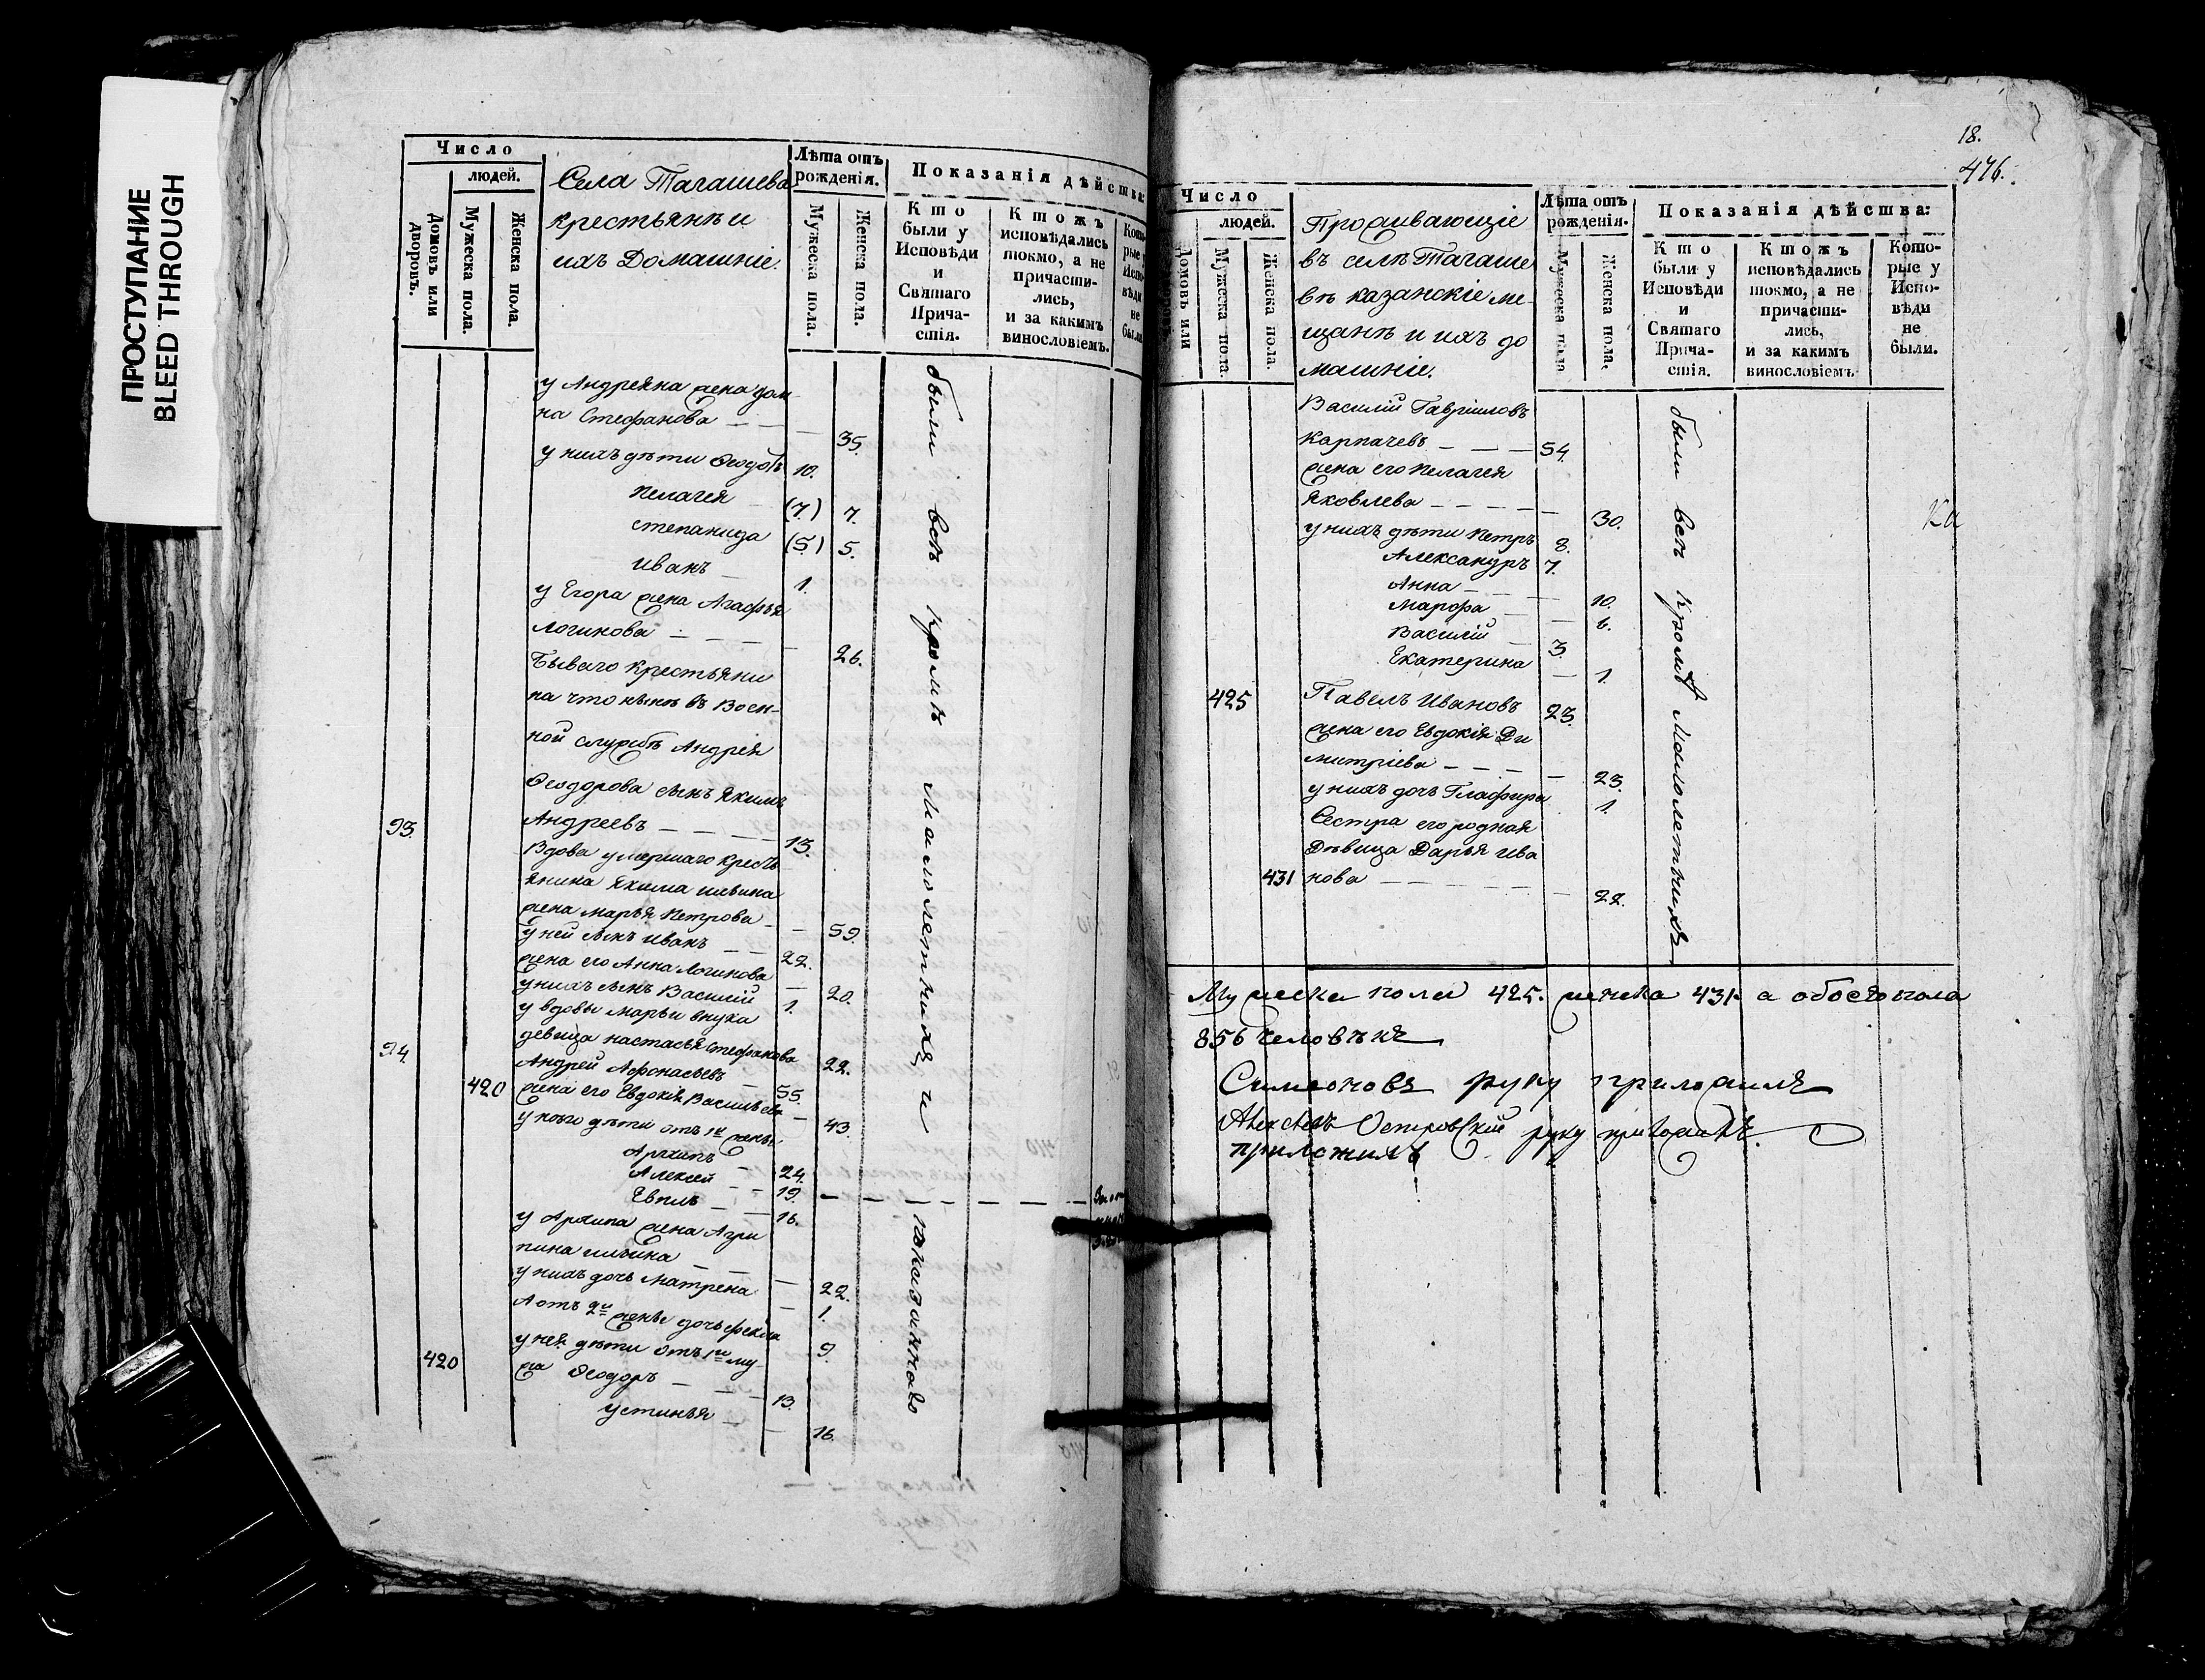 ПРОСТУПАНИЕ
BLEED THROUGH
Число
людей.
Домовъ или дворовъ.
Мужеска пола.
Женска пола.
Села Тагашева
крестьянѣ и
ихъ домашніе.
Лѣта отъ рожденія.
Мужеска пола.
Женска пола.
Показанія дѣйства:
Кто были у Исповѣди и Святаго Причастія.
Ктожъ исповѣдались токмо, а не причастились, и за какимъ винословіемъ.
у Андреяна жена Дом
на Стефанова — — — 35.
у нихъ дѣти Ѳеодотъ 10.
Пелагея (7.) 7.
Степанида (5) 5.
Иванъ 1.
у Егора жена Агафья
Логинова — — — 26.
Бываго крестьяни
на что нынѣ въ воен-
ной службѣ Андрея
Ѳеодорова сынъ Якимъ
93. Андреевъ — — — 13.
Вдова умершаго кресть
янина Якима Ильина
жена Марья Петрова — 59.
у ней сынъ Иванъ — 22.
жена его Анна Логинова — 20.
у нихъ сынъ Василій 1.
у вдовы Марьи внука
девица Настасья Стефанова 22.
94. Андрей Афонасьевъ — 55.
420 жена его Евдокія Васильева — 43.
у него дѣти отъ 1й жены
Архипъ — 24.
Алексей — 19.
Евплъ — 16.
у Архипа жена Агри
пина Ильина — 22.
у нихъ дочь Матрена — 1.
А отъ 2й жены дочь Фекла 9.
у нея дѣти отъ 1го му-
420 жа Ѳеодоръ — — — 13.
Устинья — 16.
были всѣ кромѣ малолетнихъ и показаннаго
18.
476.
Число
людей.
Домовъ или
Мужеска пола.
Женска пола.
Проживающіе
въ селѣ Тагаше
вѣ казанскіе ме-
щанѣ и ихъ до
машніе.
Лѣта отъ рожденія.
Мужеска пола
Женска пола.
Показанія дѣйства:
Кто были у Исповѣди и Святаго Причастія.
Ктожъ исповѣдались токмо, а не причастились, и за какимъ винословіемъ
Которые у Исповѣди не были.
Василій Гавріиловъ
Карпачевъ — — — 54.
жена его Пелагея
Яковлева — — — — 30.
у нихъ дѣти Петръ 8.
Александръ 7.
Анна — — — 10.
Марфа — — 6.
Василій — 3.
Екатерина — 1.
425 Павелъ Ивановъ 23.
жена его Евдокія Ди
митріева — — — — 23.
у нихъ дочь Глафира 1.
Сестра его родная
Дѣвица Дарья Ива
431 нова — — — — — 22.
были всѣ кромѣ малолетнихъ
Мужеска пола 425. женска 431 а обоего пола
856 человѣкъ
Симеоновъ руку приложилъ
Алексѣй Островскій руку приложилъ.
приложилъ